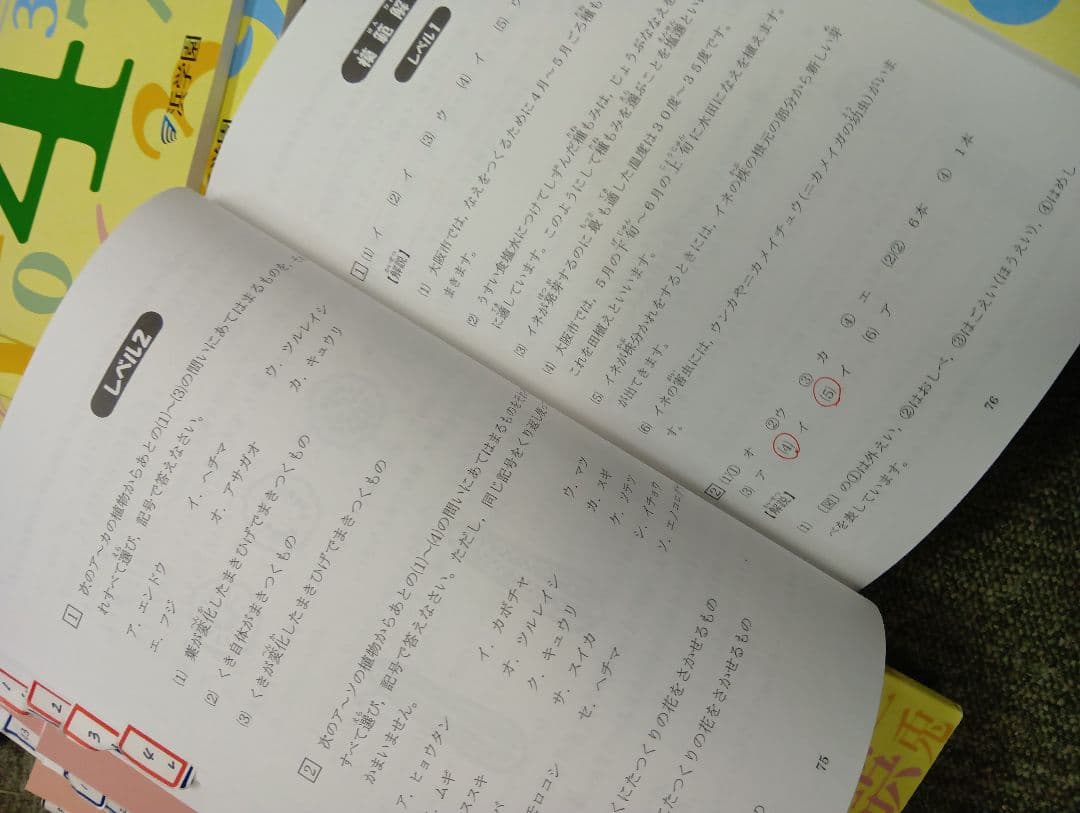 レベル2
1 次のア～カの植物からあとの(1)～(3)の問いにあてはまるものを、
れすべて選び、記号で答えなさい。
ア. エンドウ イ. ヘチマ ウ. ツルレイシ
エ. フジ オ. アサガオ カ. キュウリ
(1) 葉が変化したまきひげでまきつくもの
(2) くき自体がまきつくもの
(3) くきが変化したまきひげでまきつくもの
2 次のア～ソの植物からあとの(1)～(4)の問いにあてはまるものをそれ
すべて選び、記号で答えなさい。ただし、同じ記号をくり返し
かまいません。
ア. ヒョウタン イ. カボチャ ウ. マツ
ムギ オ. ツルレイシ カ. スギ
ススキ ク. キュウリ ケ. ソテツ
サ. スイカ シ. イチョウ
モロコシ セ. ヘチマ ソ.
くにたつくりの花をさかせるもの
にたつくりの花をさかせるもの
75
模範解
レベル1
1 (1) イ (2) イ (3) ウ (4) イ (5) ウ
【解説】
(1) 大阪市では、なえをつくるために4月～5月ごろ種も
まきます。
(2) うすい食塩水につけてしずんだ種もみは、じょうぶななえを
に適しています。このようにして種もみを選ぶことを塩選とい
(3) イネが発芽するのに最も適した温度は30度～35度です。
(4) 大阪市では、5月の下旬～6月の上旬に水田になえを植えます。
これを田植えといいます。
(5) イネが株分かれをするときには、イネの株の根元の部分から新しい芽
が出てきます。
(6) イネの害虫には、ウンカやニカメイチュウ(ニカメイガの幼虫)がいま
す。
2 (1)① オ ②ウ ③ カ ④ エ (2)② 6本 ④ 1本
(3) ア (4) イ (5) イ (6) ア
【解説】
(1) 〔図〕の①は外えい、②はおしべ、③はごえい(ほうえい)、④はめし
べを表しています。
76
浜学園
4
3
0
1
2
3
4